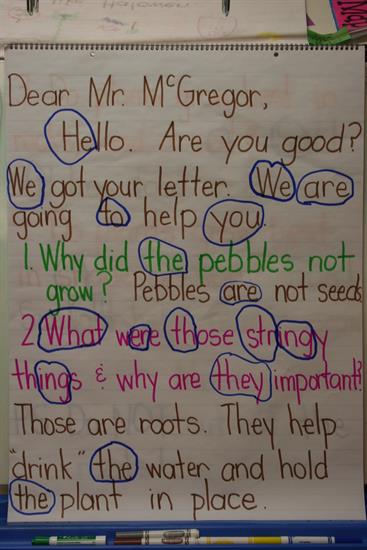 Dear Mr. McGregor,
Hello. Are you good?
We got your letter. We are
going to help you.
1. Why did the pebbles not
grow? Pebbles are not seeds
2. What were those stringy
things & why are they important?
Those are roots. They help
"drink" the water and hold
the plant in place.